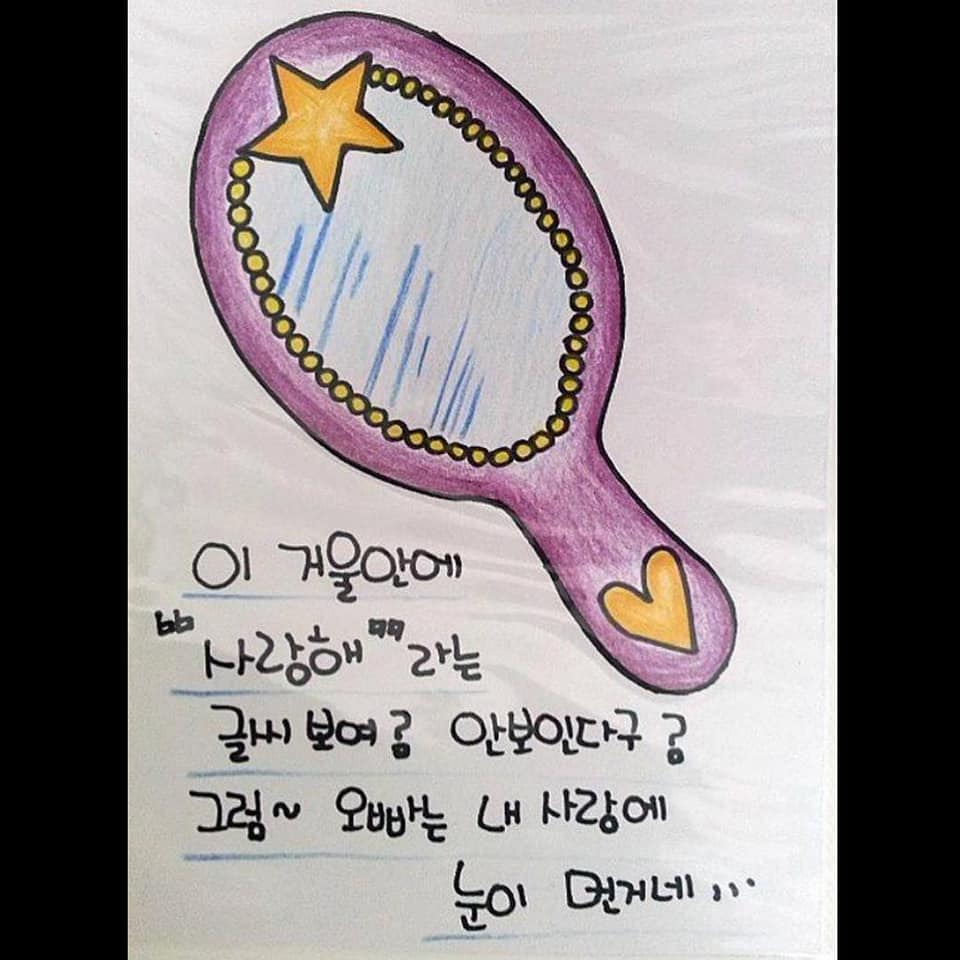 이 거울안에
"사랑해"라는
글씨 보여? 안보인다구?
그럼~ 오빠는 내 사랑에
눈이 먼거네...